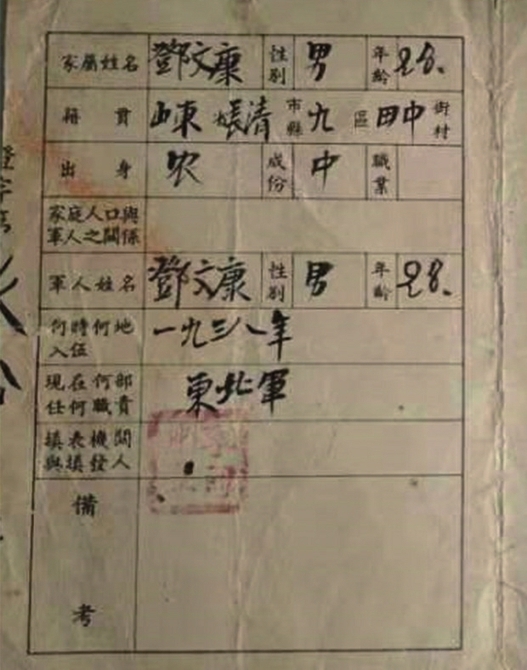 家屬姓名 鄧文康 性別 男 年齡 28.
籍貫 山東 長清 市縣 九 區 田中 街村
出身 农 成份 中 職業
家庭人口與軍人之關係
軍人姓名 鄧文康 性別 男 年齡 28.
何時何地入伍 一九三八年
現在何部任何職責 東北軍
填表機關與填發人
備考